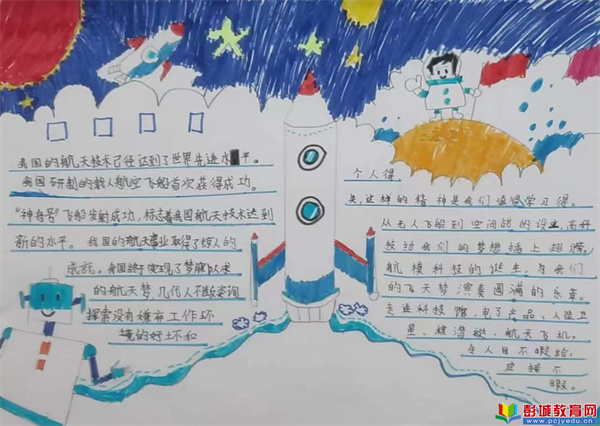 我国的航天技术已经达到了世界先进水平。
我国研制的载人航空飞船首次获得成功。
“神舟号”飞船发射成功,标志着我国航天技术达到
新的水平。我国的航天事业取得了惊人的
成就。我国终于实现了梦寐以求
的航天梦几代人不断奋
探索没有嫌弃工作环
境的好坏和
个人得
失,这样的精神是我们值得学习得。
从无人飞船到空间战的设立,高科
技给我们的梦想插上翅膀。
航模科技的诞生,为我们
的飞天梦演奏圆满的乐章。
走进科技馆,电子产品、人造卫
星、核潜艇、航天飞机,
令人目不暇给。
应接不
暇。
彭城教育网
www.pcjyedu.cn